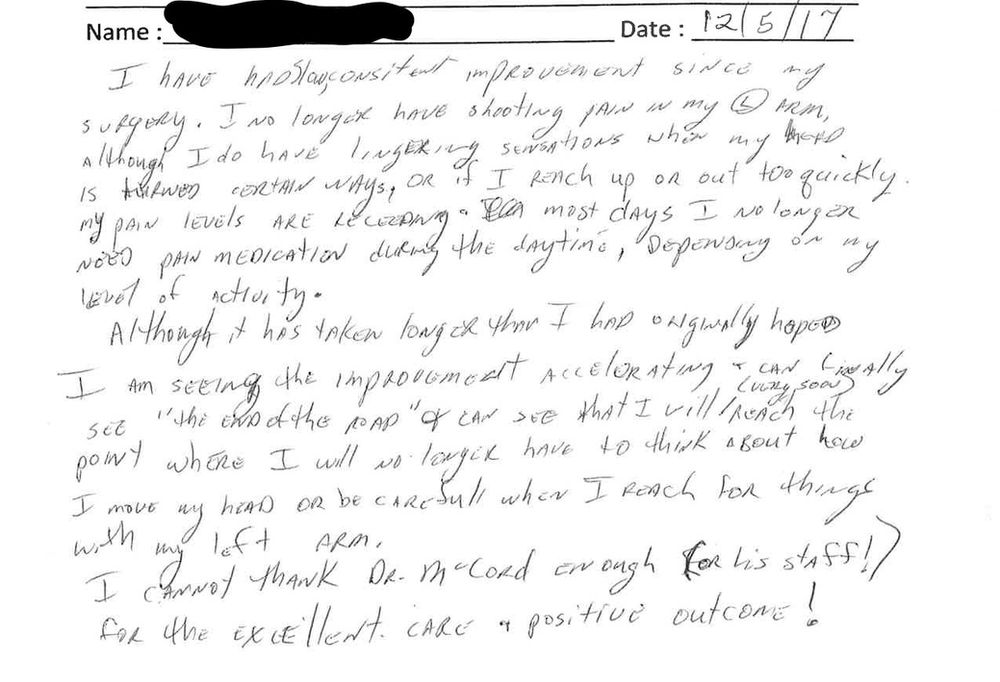 Name : Date : 12/5/17
I HAVE HAD slow, consitent improvement since my
surgery. I no longer have shooting pain in my Ⓛ ARM,
Although I do have lingering sensations when my HEAD
is turned certain ways, or if I reach up or out too quickly.
my pain levels are receeding. most days I no longer
need pain medication during the daytime, Depending on my
level of activity.
Although it has taken longer than I had originally hoped
I am seeing the improvement accelerating + can finally
(very soon)
see "the end of the road" & can see that I will / reach the
point where I will no longer have to think about how
I move my head or be carefull when I reach for things
with my left arm.
I cannot thank Dr. McCord enough (or his staff!)
for the excellent care + positive outcome!